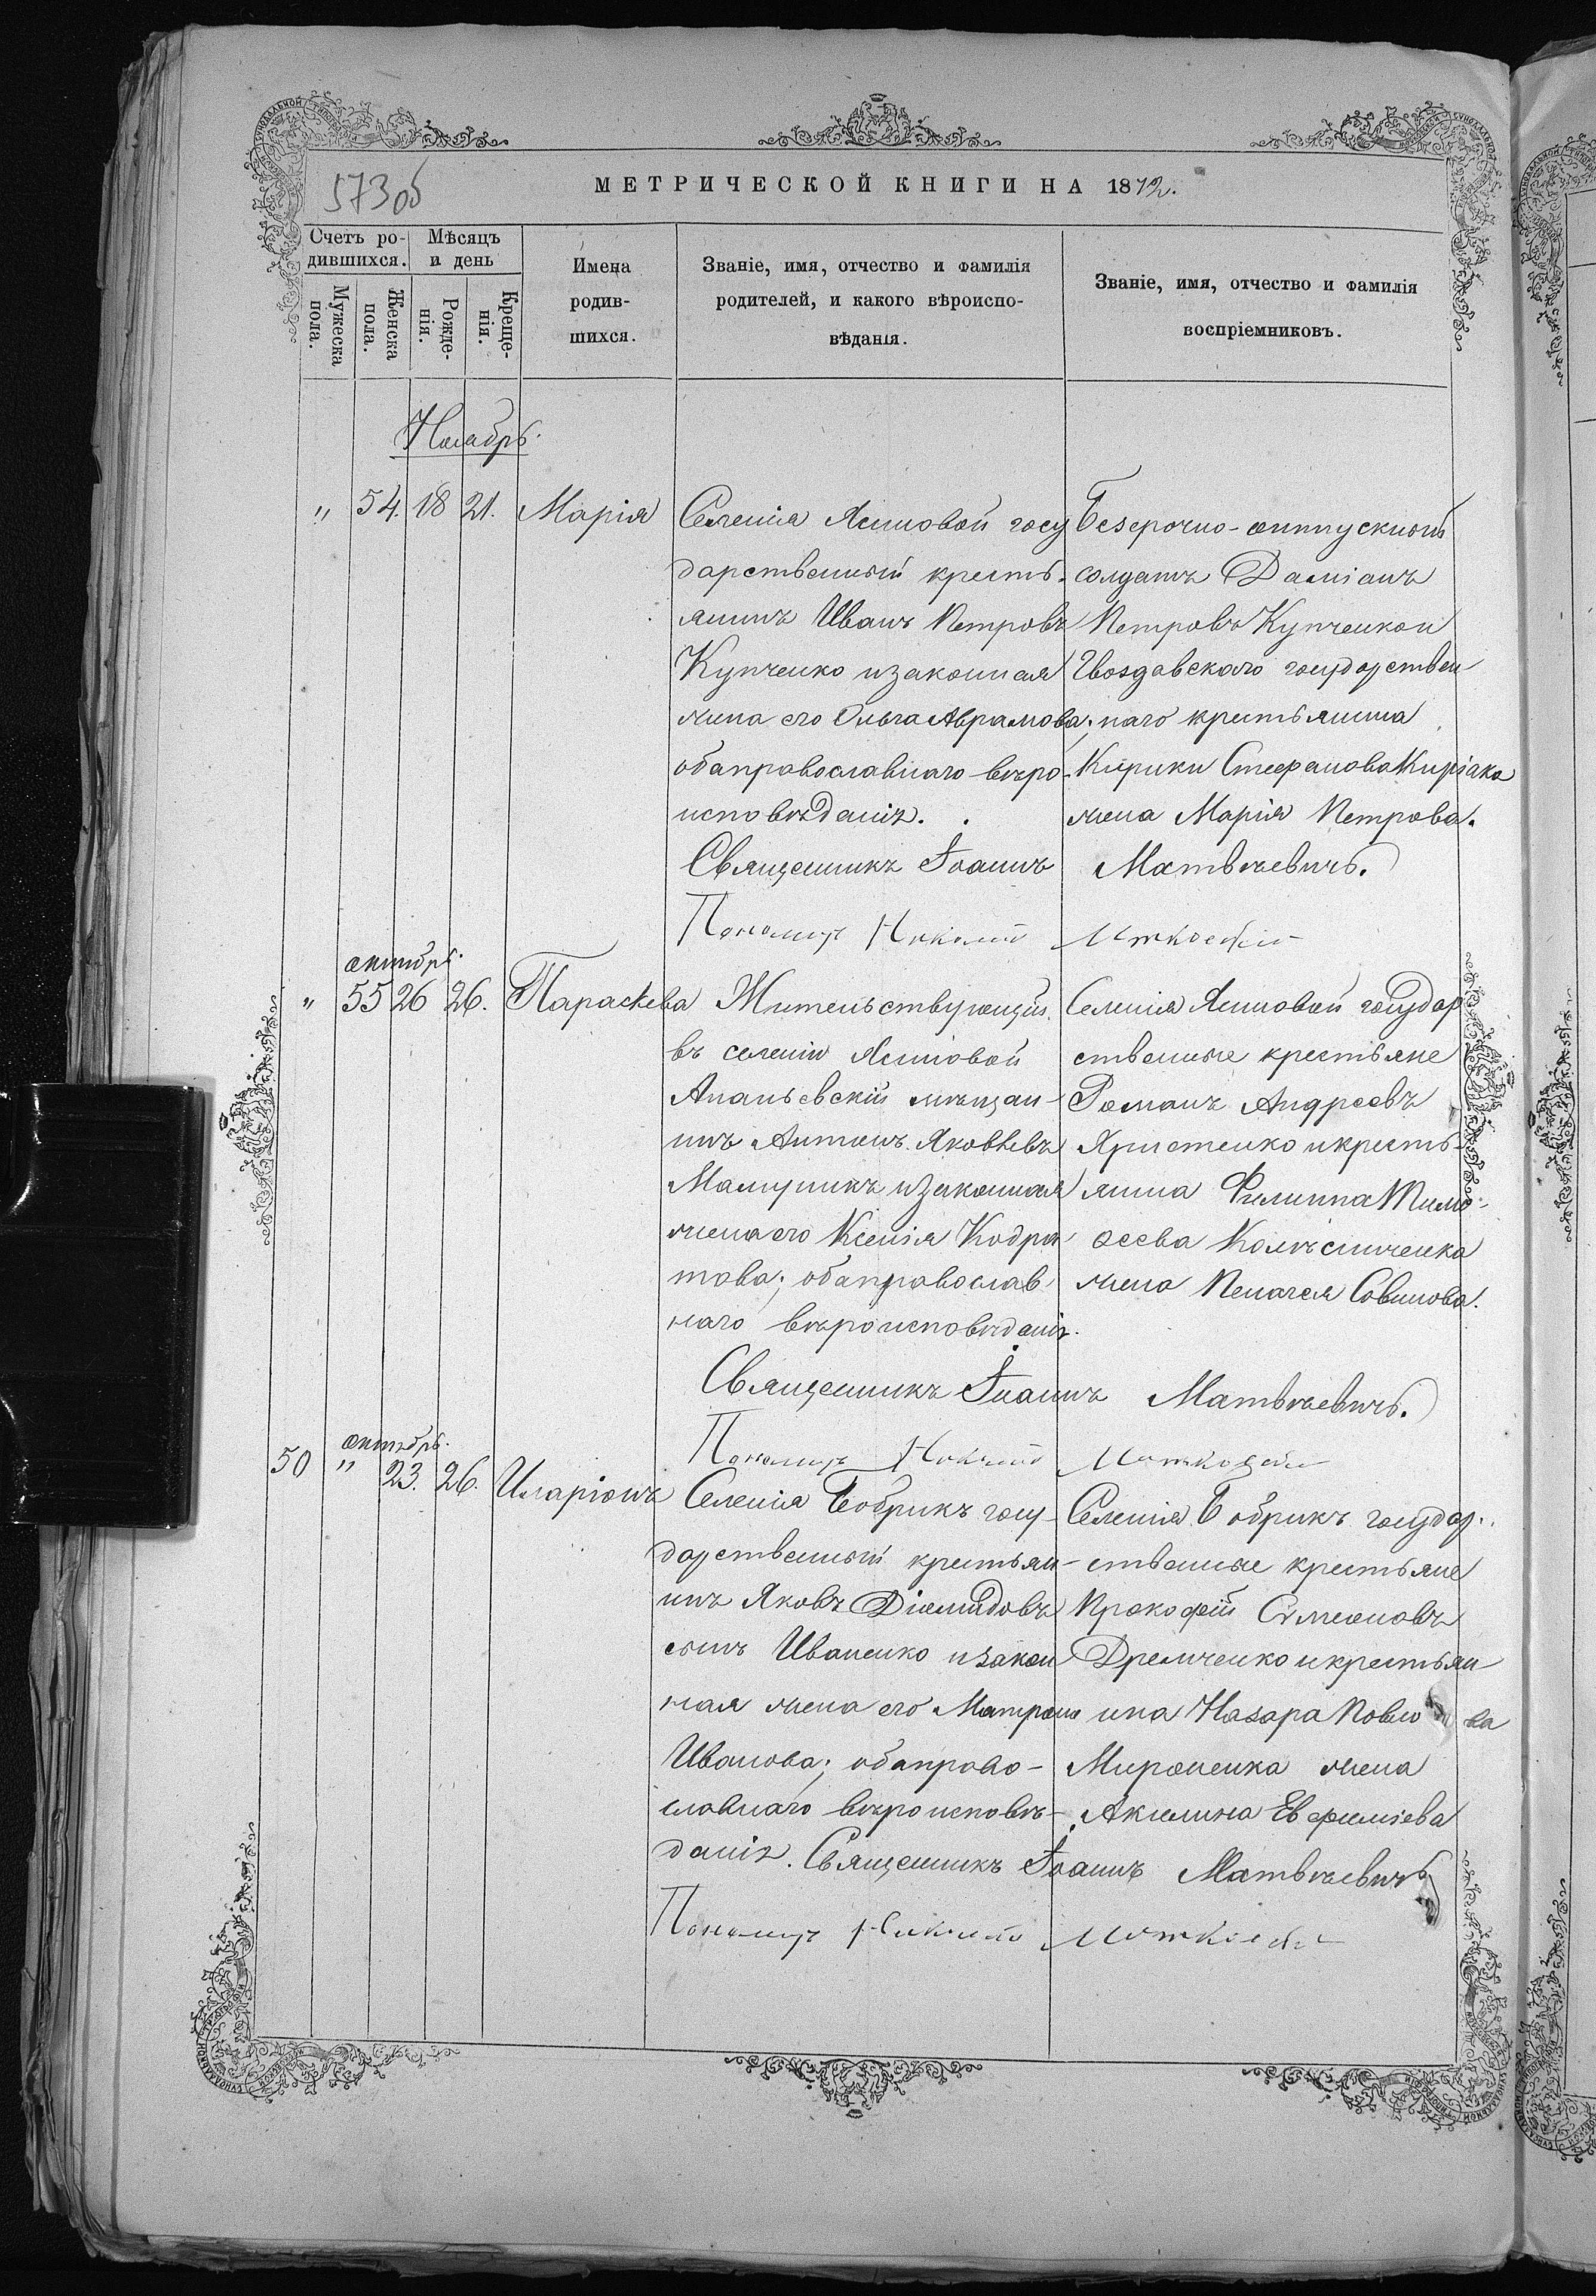 573об
МЕТРИЧЕСКОЙ КНИГИ НА 1872.
Счетъ ро-
дившихся.
Мѣсяцъ
и день
Мужеска
пола.
Женска
пола.
Рожде-
нія.
Креще-
нія.
Имена
родив-
шихся.
Званіе, имя, отчество и фамилія
родителей, и какого вѣроиспо-
вѣданія.
Званіе, имя, отчество и фамилія
воспріемниковъ.
Ноябрь.
" 54. 18 21. Марія
Селенія Ясиновой госу
дарственный кресть-
янинъ Иванъ Петровъ
Купченко и законная
жена его Ольга Аврамова;
оба православнаго вѣро-
исповѣданія.
Безсрочно-отпускной
солдатъ Даміанъ
Петровъ Купченко и
Гвоздавскаго государствен
наго крестьянина
Кирики Стефанова Киріака
жена Марія Петрова.
Священникъ Іоаннъ Матвѣевичъ.
Пономарь Николай
октябрь.
" 55 26 26. Параскева
Жительствующій
въ селеніи Ясиновой
Ананьевскій мѣщан-
инъ Антонъ Яковлевъ
и законная
жена его Ксенія Кодра
това; оба православ
наго вѣроисповѣданія.
Селенія Ясиновой государ
ственные крестьяне
Романъ Андреевъ
Христенко и кресть-
янина Филиппа Тимо-
ѳеева Колѣсниченка
жена Пелагея Савинова.
Священникъ Іоаннъ Матвѣевичъ.
Пономарь Николай
октябрь.
50 " 23. 26. Иларіонъ
Селенія Бобрикъ госу-
дарственный крестьян-
инъ Яковъ Діомидовъ
сынъ Иваненко и закон
ная жена его Матрона
Иванова; оба право-
славнаго вѣроисповѣ-
данія.
Селенія Бобрикъ государ-
ственные крестьяне
Прокофій Симеоновъ
Дремченко и крестьян
ина Назара Павлова
Мироненка жена
Акилина Евфиміева
Священникъ Іоаннъ Матвѣевичъ
Пономарь Николай